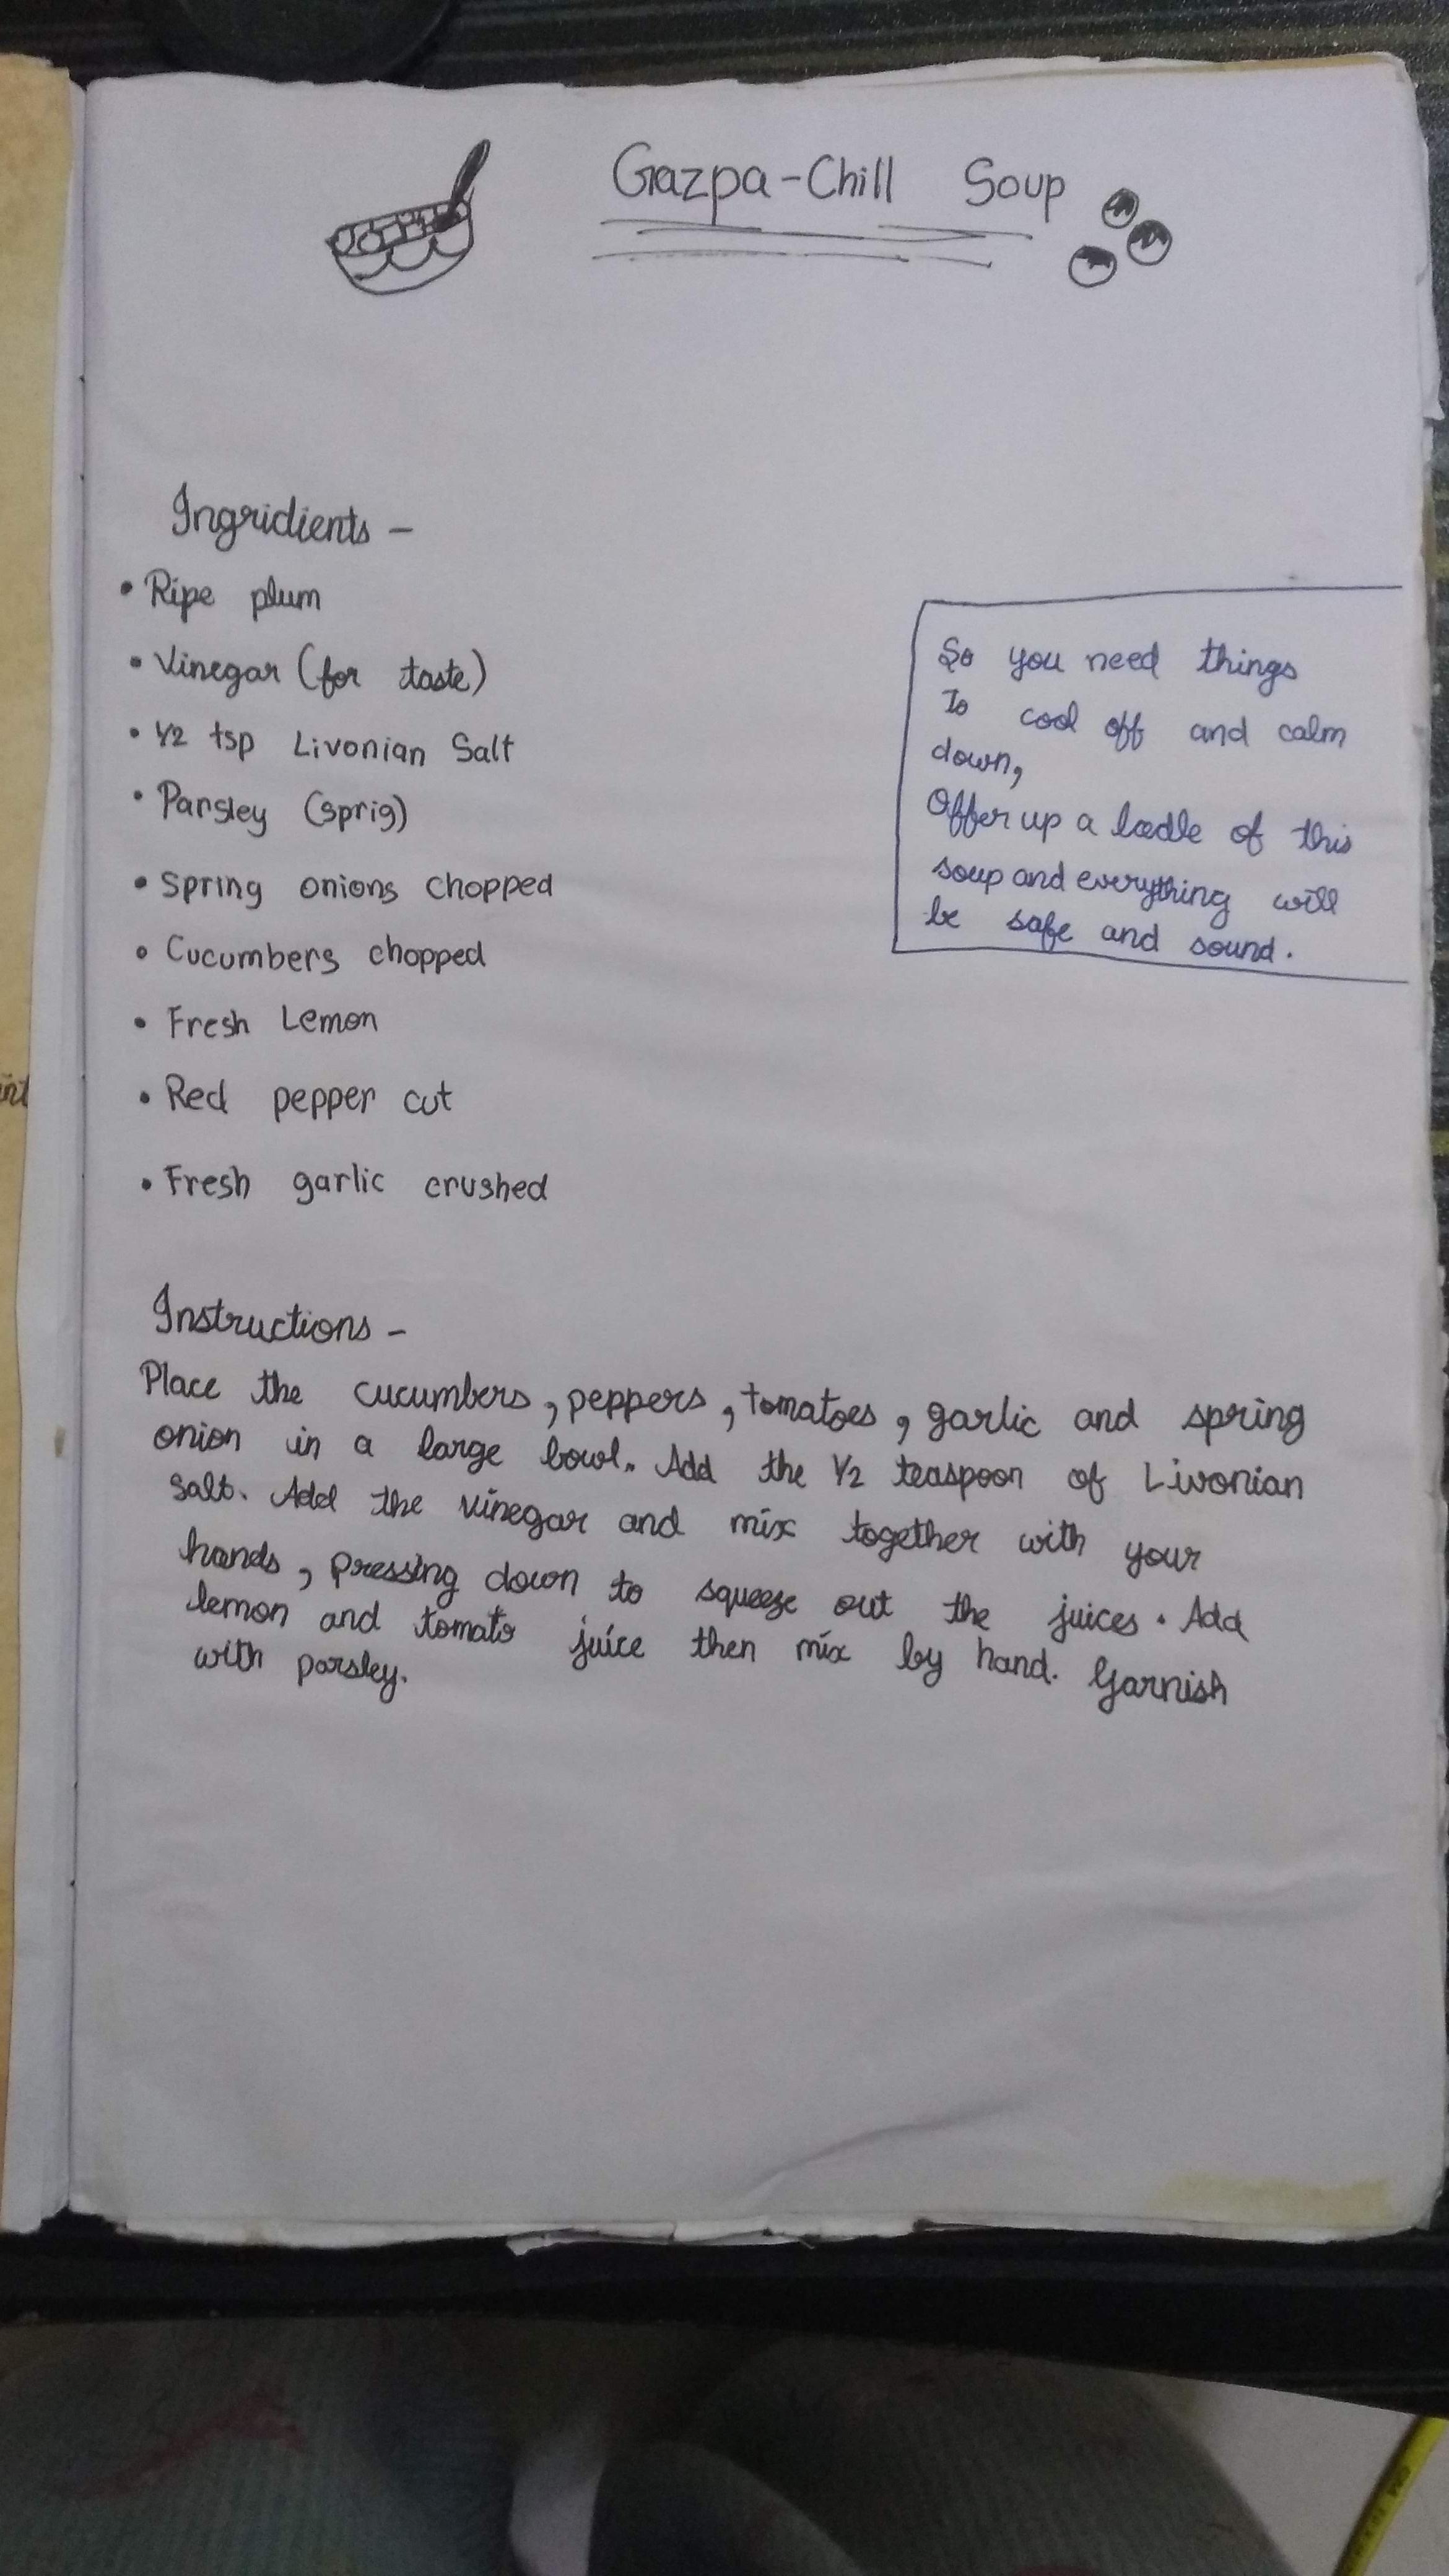 Gazpa-Chill Soup
Ingridients -
• Ripe plum
• Vinegar (for taste)
• 1/2 tsp Livonian Salt
• Parsley (sprig)
• Spring onions chopped
• Cucumbers chopped
• Fresh Lemon
• Red pepper cut
• Fresh garlic crushed
So you need things
To cool off and calm
down,
Offer up a ladle of this
soup and everything will
be safe and sound.
Instructions -
Place the cucumbers, peppers, tomatoes, garlic and spring
onion in a large bowl. Add the 1/2 teaspoon of Livonian
Salt. Add the vinegar and mix together with your
hands, pressing down to squeeze out the juices. Add
lemon and tomato juice then mix by hand. Garnish
with parsley.